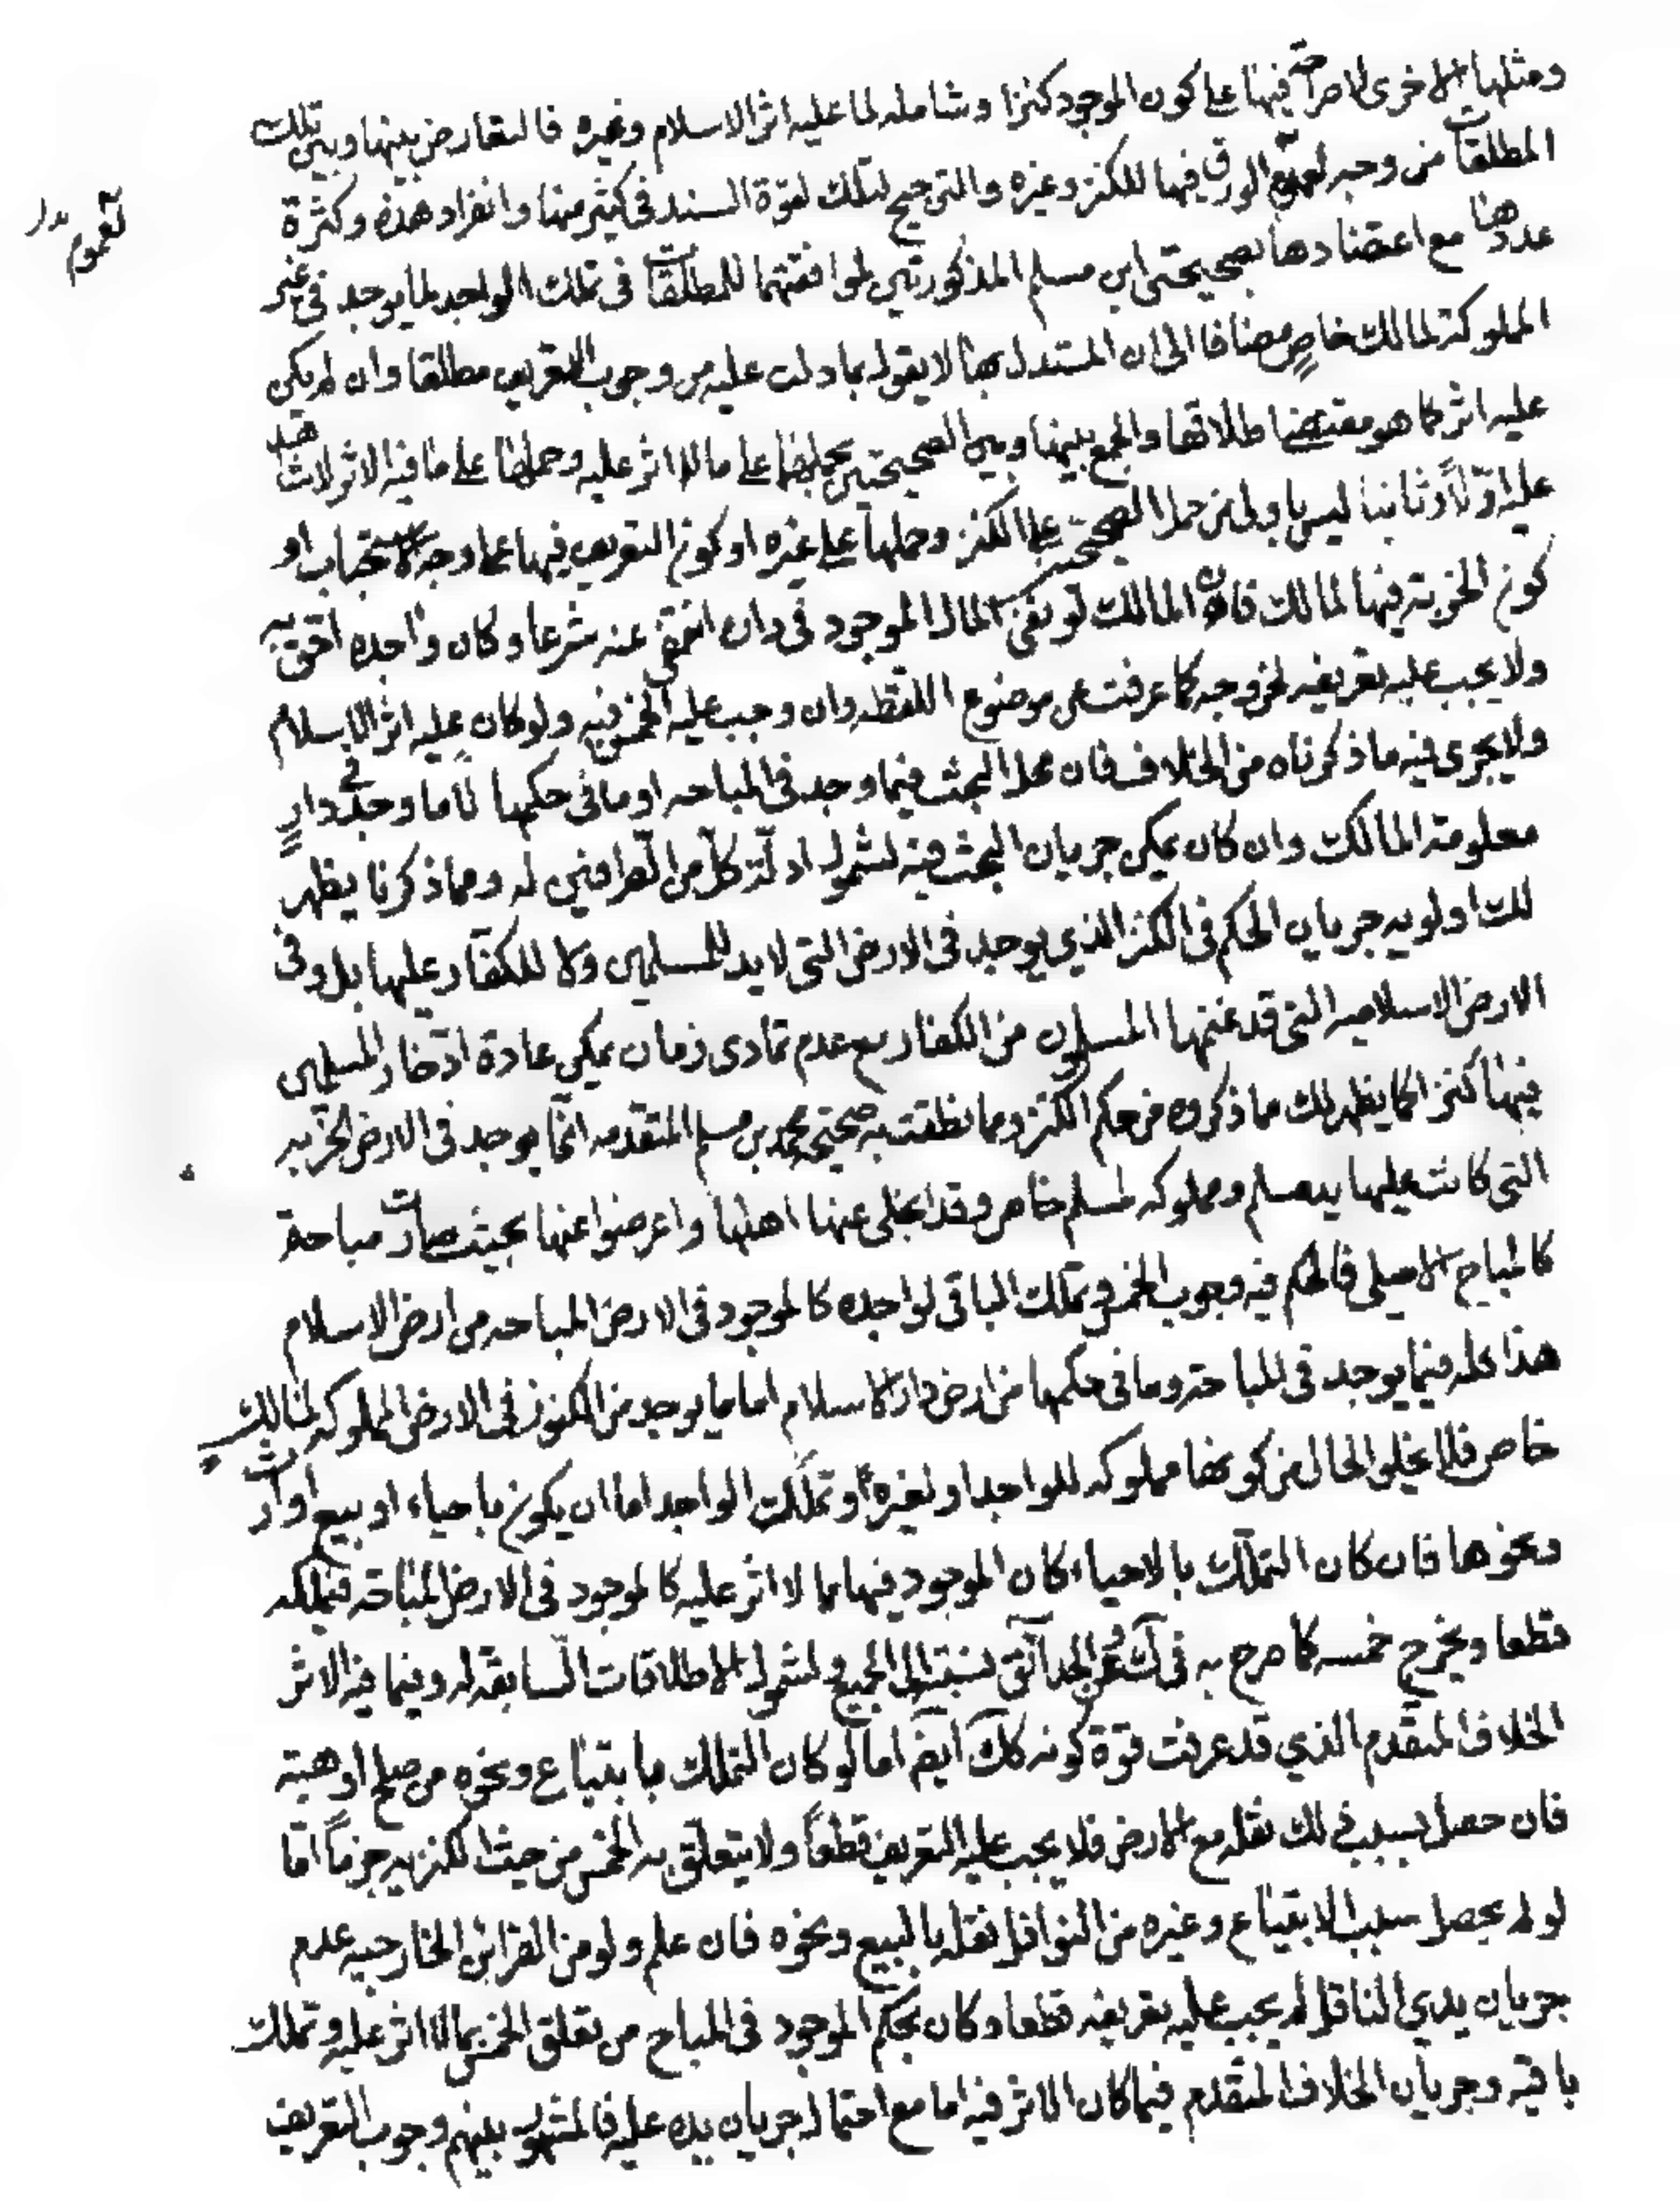 ومثلها الاخرى لا صراحة فيها على كون الموجود كنزا وشامله لما عليه اثر الاسلام وغيره فالتعارض بينها وبين تلك
المطلقات من وجه لعموم الورق فيها للكنز وغيره والترجيح لتلك لقوة السند في كثير منها وانفراد هذه وكثرة
لعموم
عددها مع اعتضادها بصحيحتي ابن مسلم المذكورتين لموافقتهما للمطلقات في تملك الواجد لما يوجد في غير
المملوكة لمالك خاص مضافا الى ان المستدل بها لا يقول بما دلت عليه من وجوب التعريف مطلقا وان لم يكن
عليه اثر كما هو مقتضى اطلاقها والجمع بينها وبين الصحيحتين بحملهما على ما لا اثر عليه وحملها على ما فيه الاثر لا شاهد
عليه اوّلاً وثانيا ليس باولى من حمل الصحيحتين على الكنز وحملها على غيره او كون التعريف فيها على وجه الاستحباب او
كون الخربة فيها لمالك فان المالك لو نفى المال الموجود في داره انتفى عنه شرعا وكان واجده احق به
ولا يجب عليه تعريفه لخروجه كما عرفت عن موضوع اللقطه وان وجب عليه الخمس فيه ولو كان عليه اثر الاسلام
ولا يجرى فيه ما ذكرناه من الخلاف فان محل البحث فيما وجد في المباحه او ما في حكمها لا ما وجد في دارٍ
معلومة المالك وان كان يمكن جريان البحث فيه لشمول ادلّة كلّ من الطرافين له ومما ذكرنا يظهر
لك اولويه جريان الحكم في الكنز الذي يوجد في الارض التي لا يد للمسلمين ولا للكفار عليها بل وفي
الارض الاسلاميه التي قد غنمها المسلمون من الكفار مع عدم تمادى زمان يمكن عادة ادّخار المسلمين
فيها كنزا كما يظهر لك مما ذكروه من حكم الكنز ومما نطقت به صحيحة محمد بن مسلم المتقدمه انما يوجد في الارض الخربه
التي كانت عليها يد مسلم ومملوكه لمسلم خاص وقد انجلى عنها اهلها واعرضوا عنها بحيث صارت مباحة
كالمباح الاصلي فالحكم فيه وجوب الخمس وتملك الباقي لواجده كالموجود في الارض المباحه من ارض الاسلام
هذا كله فيما يوجد في المباحة وما في حكمها من ارض دار الاسلام اما ما يوجد من الكنوز في الارض المملوكه لمالك
خاص فلا يخلو الحال من كونها مملوكه للواجد او لغيره او تملك الواجد اما ان يكون باحياء او بيع او ارث
ونحوها فان كان التملك بالاحياء كان الموجود فيها مما لا اثر عليه كالموجود في الارض المباحة فيملكه
قطعا ويخرج خمسه كما صرح به في نسبته الى الجميع ولشمول الاطلاقات السّابقه له وفيما فيه الاثر
الخلاف المتقدم الذي قد عرفت قوة كونه كك ايضا اما لو كان التملك بابتياع ونحوه من صلح او هبة
فان حصل بسبب ذلك نقله مع الارض فلا يجب عليه التعريف قطعاً ولا يتعلق به الخمس من حيث الكنزيه جزماً امّا
لو لم يحصل بسبب الابتياع وغيره من النواقل نقله بالبيع ونحوه فان علم ولو من القرائن الخارجيه عدم
جريان يدي الناقل لم يجب عليه تعريفه قطعا وكان بحكم الموجود في المباح من تعلق الخمس بما لا اثر عليه وتملك
باقيه وجريان الخلاف المتقدم فيما كان الاثر فيه اما مع احتمال جريان يده عليه فالمشهور بينهم وجوب التعريف